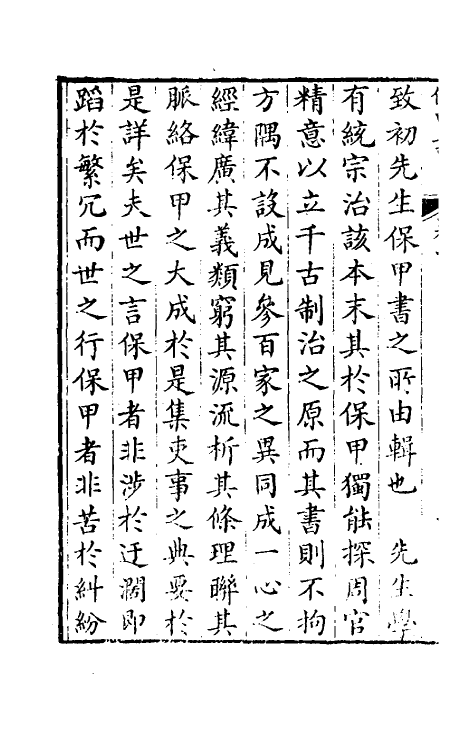 致初先生保甲書之所由輯也　先生學
有統宗治該本末其於保甲獨能探周官
精意以立千古制治之原而其書則不拘
方隅不設成見參百家之異同成一心之
經緯廣其義類窮其源流析其條理聯其
脈絡保甲之大成於是集吏事之典要於
是詳矣夫世之言保甲者非涉於迂濶即
蹈於繁冗而世之行保甲者非苦於糾紛